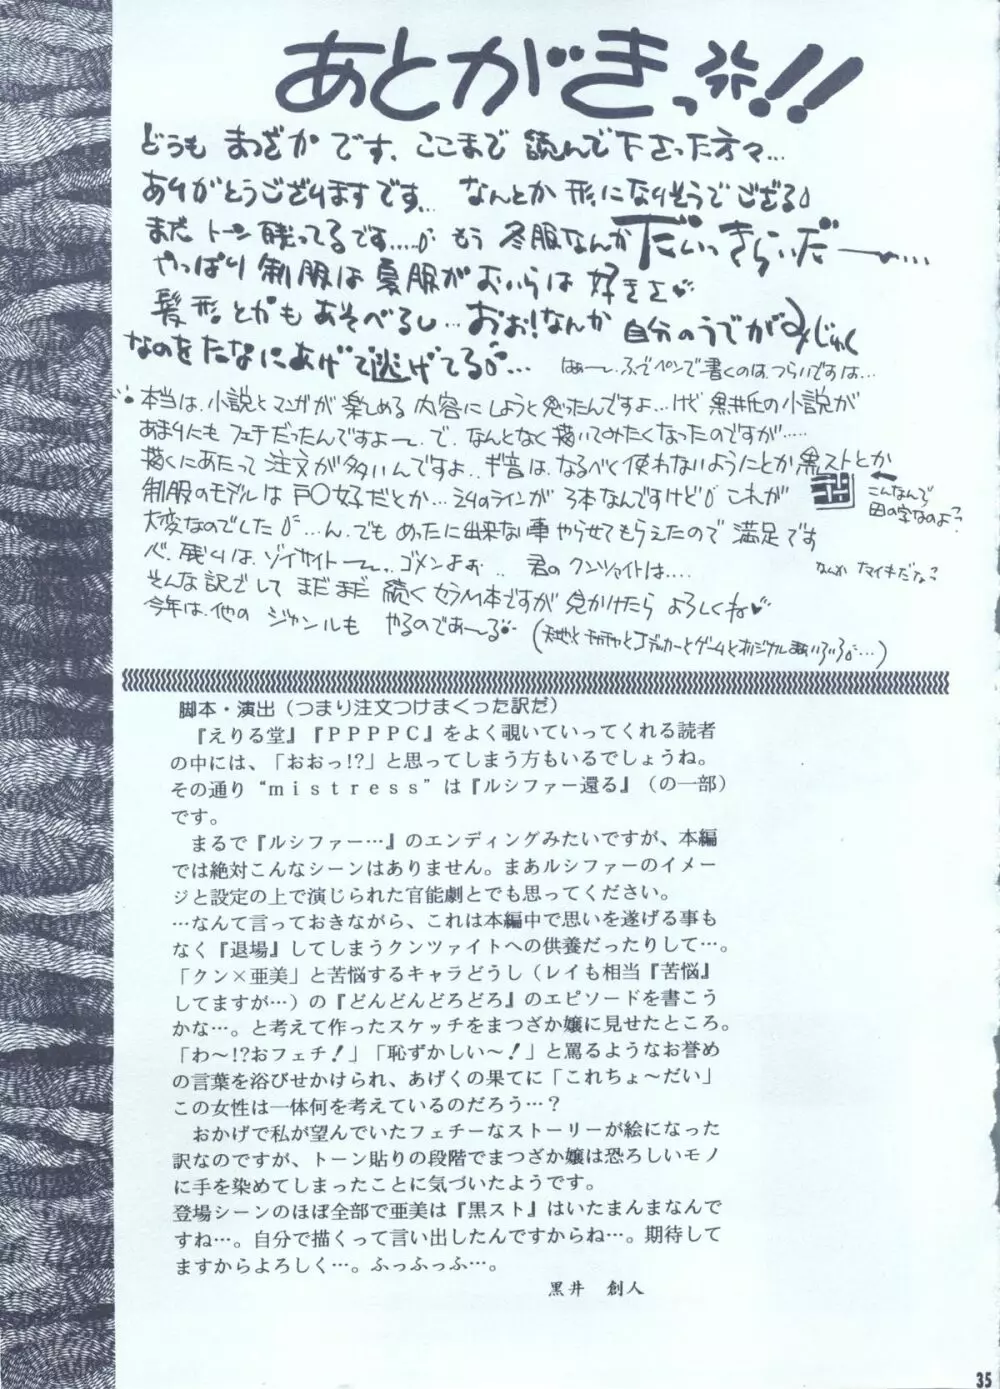 あとがきっ!!
どうも まつざか です、ここまで 読んで下さった方々…
ありがとうございますです… なんとか 形になりそうでござる
まだ トーン残ってるです…… もう 冬服なんか だいっきらいだー…
やっぱり 制服は 夏服が おいらは 好きさ♥
髪形とかもあそべるし… おお!なんか 自分のうでがみじゅく
なのをたなにあげて逃げてる…
はぁー、ふでペンで書くのは、つらいですは…
本当は、小説とマンガが 楽しめる 内容にしようと思ったんですよ…けど 黒井氏の小説が
あまりにも フェチだったんですよー で、なんとなく描いてみたくなったのですが……
描くにあたって 注文が多いんですよ、ギ音は、なるべく使わないようにとか 黒ストとか
制服のモデルは 戸〇好だとか… えりのラインが 3本なんですけど これが
こんなんで
田の字なのよ?
大変なのでした …ん、でも めったに出来ない事 やらせてもらえたので 満足です
心残りは、ゾイサイトー、ゴメンよぉ… 君の クンツァイトは……
なんか ナマイキだな?
そんな訳でして まだまだ 続く セラムン本ですが 見かけたら よろしくね♥
今年は、他の ジャンルも やるのであーる
脚本・演出(つまり注文つけまくった訳だ)
『えりる堂』『PPPPC』をよく覗いていってくれる読者
の中には、「おおっ!?」と思ってしまう方もいるでしょうね。
その通り“mistress”は『ルシファー還る』(の一部)
です。
まるで『ルシファー…』のエンディングみたいですが、本編
では絶対こんなシーンはありません。まあルシファーのイメー
ジと設定の上で演じられた官能劇とでも思ってください。
…なんて言っておきながら、これは本編中で思いを遂げる事も
なく『退場』してしまうクンツァイトへの供養だったりして…。
「クン×亜美」と苦悩するキャラどうし(レイも相当『苦悩』
してますが…)の『どんどんどろどろ』のエピソードを書こう
かな…。と考えて作ったスケッチをまつざか嬢に見せたところ。
「わ～!?おフェチ!」「恥ずかしい～!」と罵るようなお誉め
の言葉を浴びせかけられ、あげくの果てに「これちょ～だい」
この女性は一体何を考えているのだろう…?
おかげで私が望んでいたフェチーなストーリーが絵になった
訳なのですが、トーン貼りの段階でまつざか嬢は恐ろしいモノ
に手を染めてしまったことに気づいたようです。
登場シーンのほぼ全部で亜美は『黒スト』はいたまんまなんで
すね…。自分で描くって言い出したんですからね…。期待して
ますからよろしく…。ふっふっふ…。
黒井 創人
35